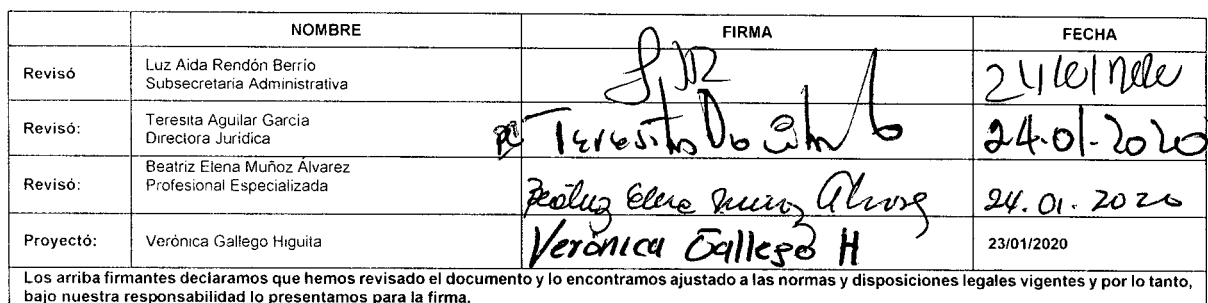 NOMBRE FIRMA FECHA
Revisó Luz Aida Rendón Berrio
Subsecretaria Administrativa
Revisó: Teresita Aguilar Garcia
Directora Jurídica
Teresita 24.01.2020
Revisó: Beatriz Elena Muñoz Álvarez
Profesional Especializada
Beatriz Elena Muñoz 24.01.2020
Proyectó: Verónica Gallego Higuita Verónica Gallego H 23/01/2020
Los arriba firmantes declaramos que hemos revisado el documento y lo encontramos ajustado a las normas y disposiciones legales vigentes y por lo tanto,
bajo nuestra responsabilidad lo presentamos para la firma.